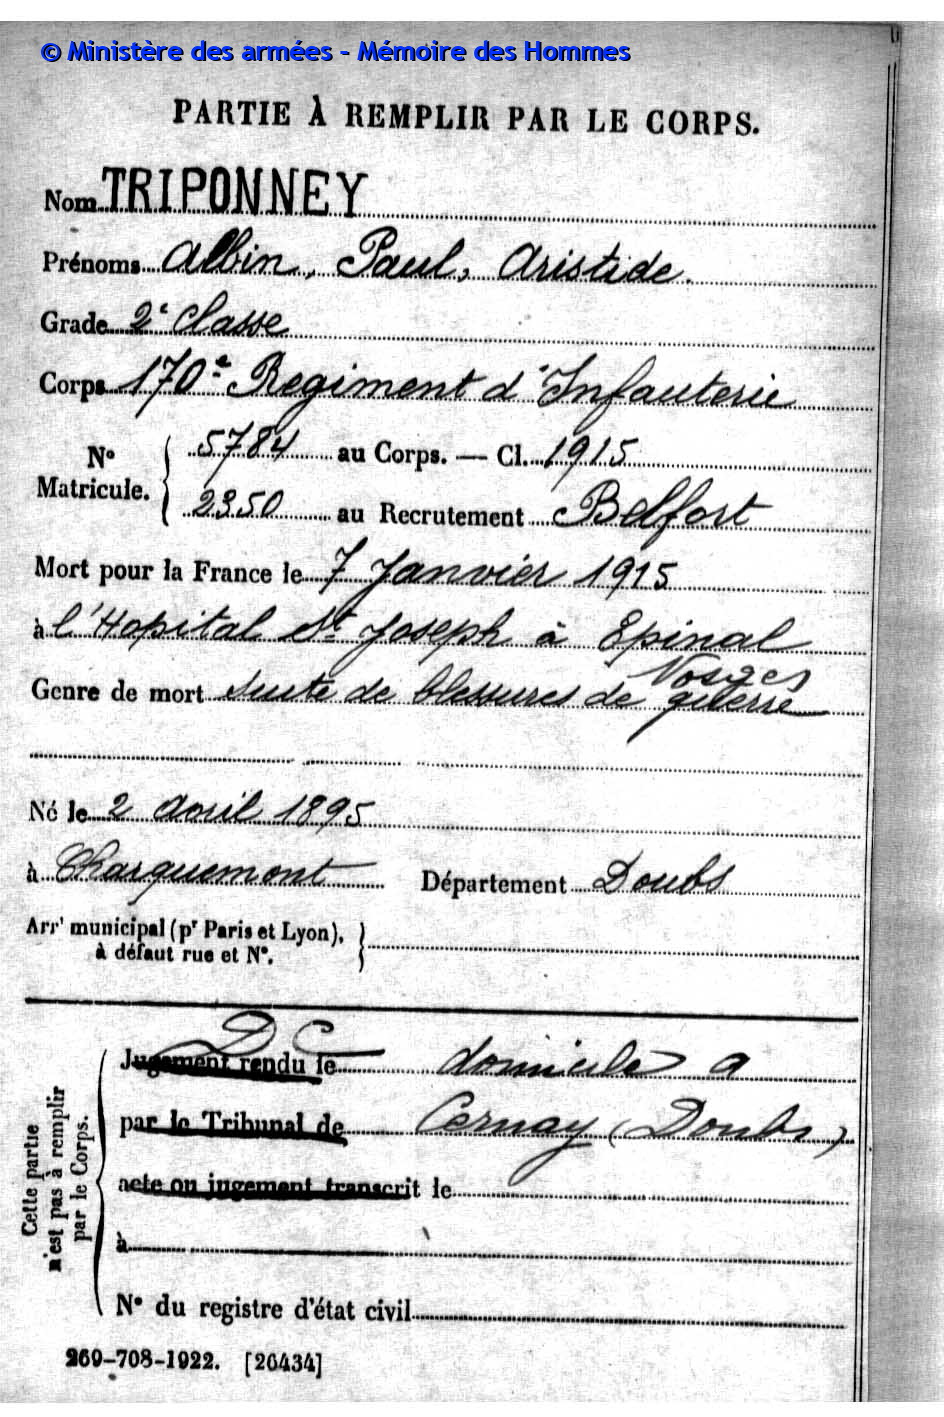 © Ministère des armées - Mémoire des Hommes
PARTIE À REMPLIR PAR LE CORPS.
Nom TRIPONNEY
Prénoms Albin, Paul, Aristide.
Grade 2e Classe
Corps 170e Regiment d'Infanterie
N° Matricule. { 5784 au Corps. — Cl. 1915
2350 au Recrutement Belfort
Mort pour la France le 7 Janvier 1915
à l'Hopital St Joseph à Epinal
Vosges
Genre de mort suite de blessures de guerre
Né le 2 Avril 1895
à Charquemont Département Doubs
Arrt municipal (pr Paris et Lyon), }
à défaut rue et N°.
D C
Jugement rendu le domicile a
par le Tribunal de Cernay (Doubs)
acte ou jugement transcrit le
à
N° du registre d'état civil
Cette partie
n'est pas à remplir
par le Corps.
269-708-1922. [26434]